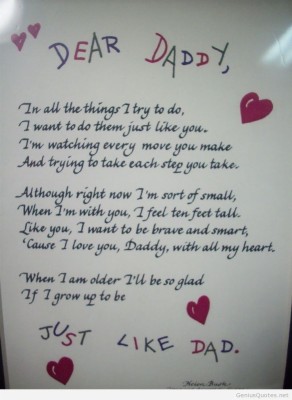 DEAR DADDY,
In all the things I try to do,
I want to do them just like you.
I'm watching every move you make
And trying to take each step you take.
Although right now I'm sort of small,
When I'm with you, I feel ten feet tall.
Like you, I want to be brave and smart,
'Cause I love you, Daddy, with all my heart.
When I am older I'll be so glad
If I grow up to be
JUST LIKE DAD.
GeniusQuotes.net